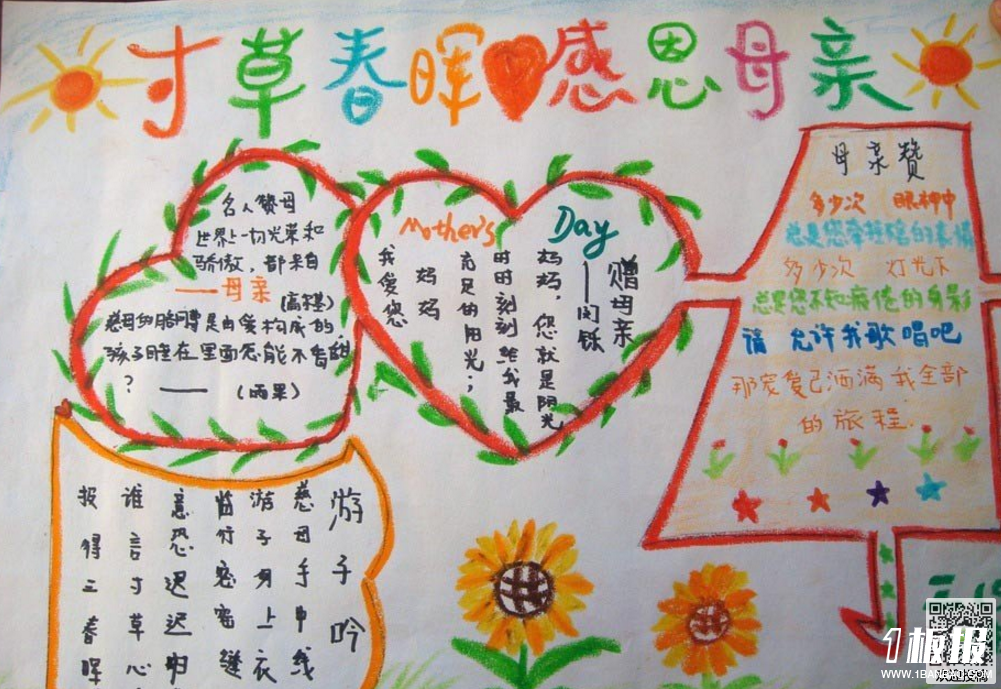 寸草春晖感恩母亲
名人赞母
世界上一切光荣和
骄傲,都来自
——母亲(高尔基)
慈母的胳膊是由爱构成的
孩子睡在里面怎能不香甜
? ——(雨果)
Mother's Day
赠母亲
妈妈,您就是阳光
时时刻刻给我最
充足的阳光;
妈妈
我爱您
母亲赞
多少次 眼神中
总是您牵挂的表情
多少次 灯光下
总是您不知疲倦的身影
请 允许我歌唱吧
那宠爱已洒满我全部
的旅程.
游子吟
慈母手中线
游子身上衣
临行密密缝
意恐迟迟归
谁言寸草心
报得三春晖
1板报
WWW.1BANBAO.COM
欢迎投稿